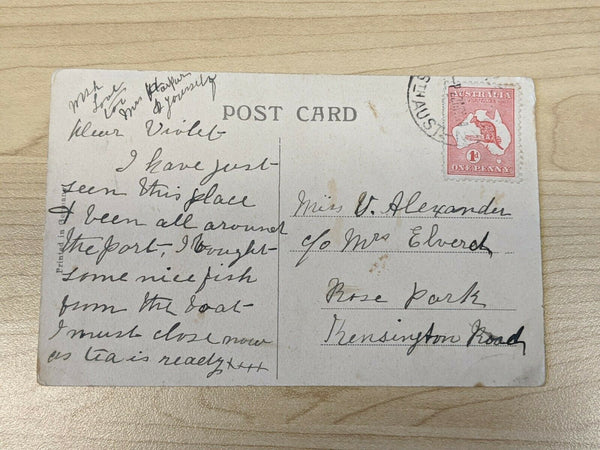 With
Love
to
Mrs
& yourself
POST CARD
Dear Violet
I have just
seen this place
I been all around
the port, I bought
some nice fish
from the boat
I must close now
as tea is ready ××××
Printed in
STH AUST
AUSTRALIA
1D
ONE PENNY
Miss V. Alexander
c/o Mrs Elverd
Rose Park
Kensington Road